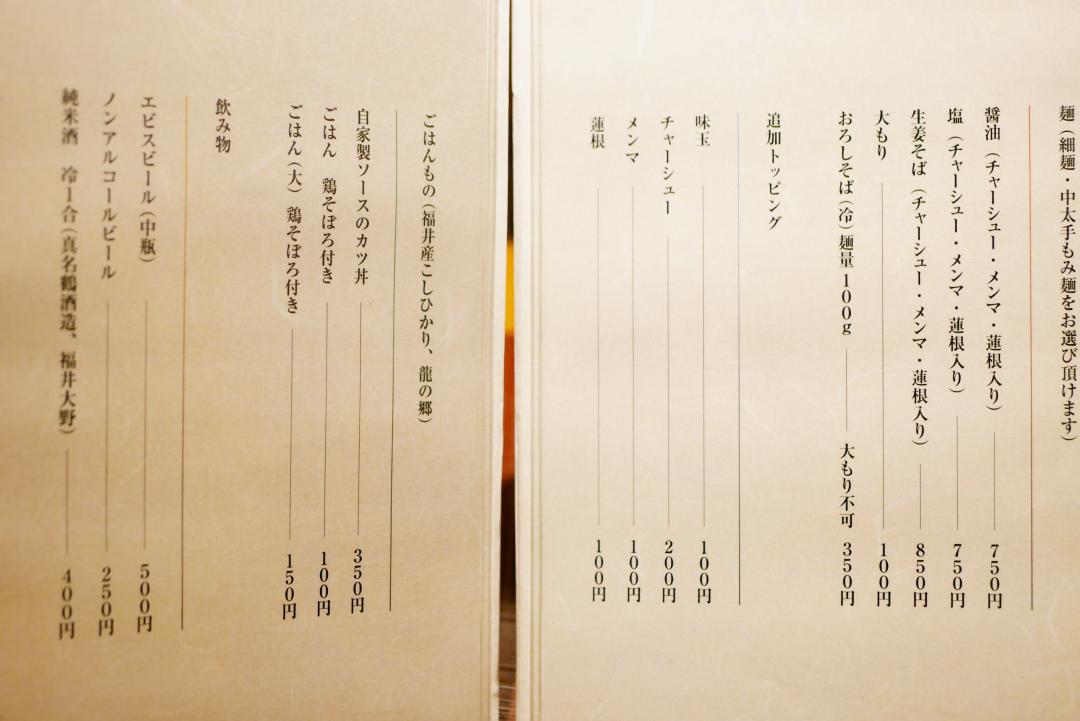 麺（細麺・中太手もみ麺をお選び頂けます）
醤油（チャーシュー・メンマ・蓮根入り） 750円
塩（チャーシュー・メンマ・蓮根入り） 750円
生姜そば（チャーシュー・メンマ・蓮根入り） 850円
大もり 100円
おろしそば（冷）麺量100g 大もり不可 350円
追加トッピング
味玉 100円
チャーシュー 200円
メンマ 100円
蓮根 100円
ごはんもの（福井産こしひかり、龍の郷）
自家製ソースのカツ丼 350円
ごはん 鶏そぼろ付き 100円
ごはん（大） 鶏そぼろ付き 150円
飲み物
エビスビール（中瓶） 500円
ノンアルコールビール 250円
純米酒 冷1合（真名鶴酒造、福井大野） 400円